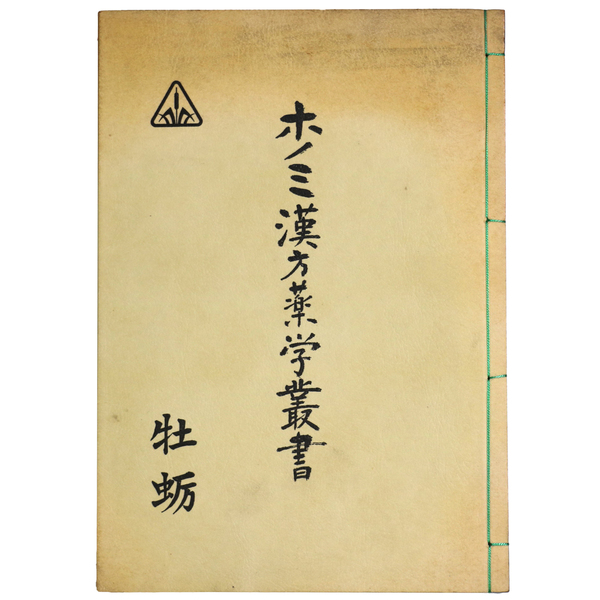 ホノミ漢方薬学叢書
牡蛎